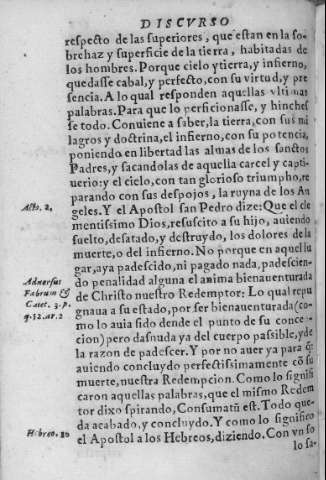 DISCVRSO
respecto de las superiores, que estan en la so-
brehaz y superficie de la tierra, habitadas de
los hombres. Porque cielo y tierra, y infierno,
quedasse cabal, y perfecto, con su virtud, y pre
sencia. A lo qual responden aquellas vltimas
palabras. Para que lo perficionasse, y hinches
se todo. Conuiene a saber, la tierra, con sus mi
lagros y doctrina, el infierno, con su potencia,
poniendo en libertad las almas de los sanctos
Padres, y sacandolas de aquella carcel y capti-
uerio: y el cielo, con tan glorioso triumpho, re
parando con sus despojos, la ruyna de los An
Acto. 2.
geles. Y el Apostol san Pedro dize: Que el cle
mentissimo Dios, resuscito a su hijo, auiendo
suelto, desatado, y destruydo, los dolores de la
muerte, o del infierno. No porque en aquel lu
gar, aya padescido, ni pagado nada, padescien-
Aduersus
do penalidad alguna el anima bienauenturada
Fabrum &
de Christo nuestro Redemptor: Lo qual repu
Caiet. 3. p.
gnaua a su estado, por ser bienauenturada (co-
q. 52. ar. 2
mo lo auia sido dende el punto de su conce-
cion) pero dasnuda ya del cuerpo passible, y de
la razon de padescer. Y por no auer ya para q̃
auiendo concluydo perfectissimamente cõ su
muerte, nuestra Redempcion. Como lo signifi
caron aquellas palabras, que el mismo Redem
tor dixo spirando, Consumatũ est. Todo que-
da acabado, y concluydo. Y como lo significo
Hebreo. 10
el Apostol a los Hebreos, diziendo. Con vn so
lo sa-